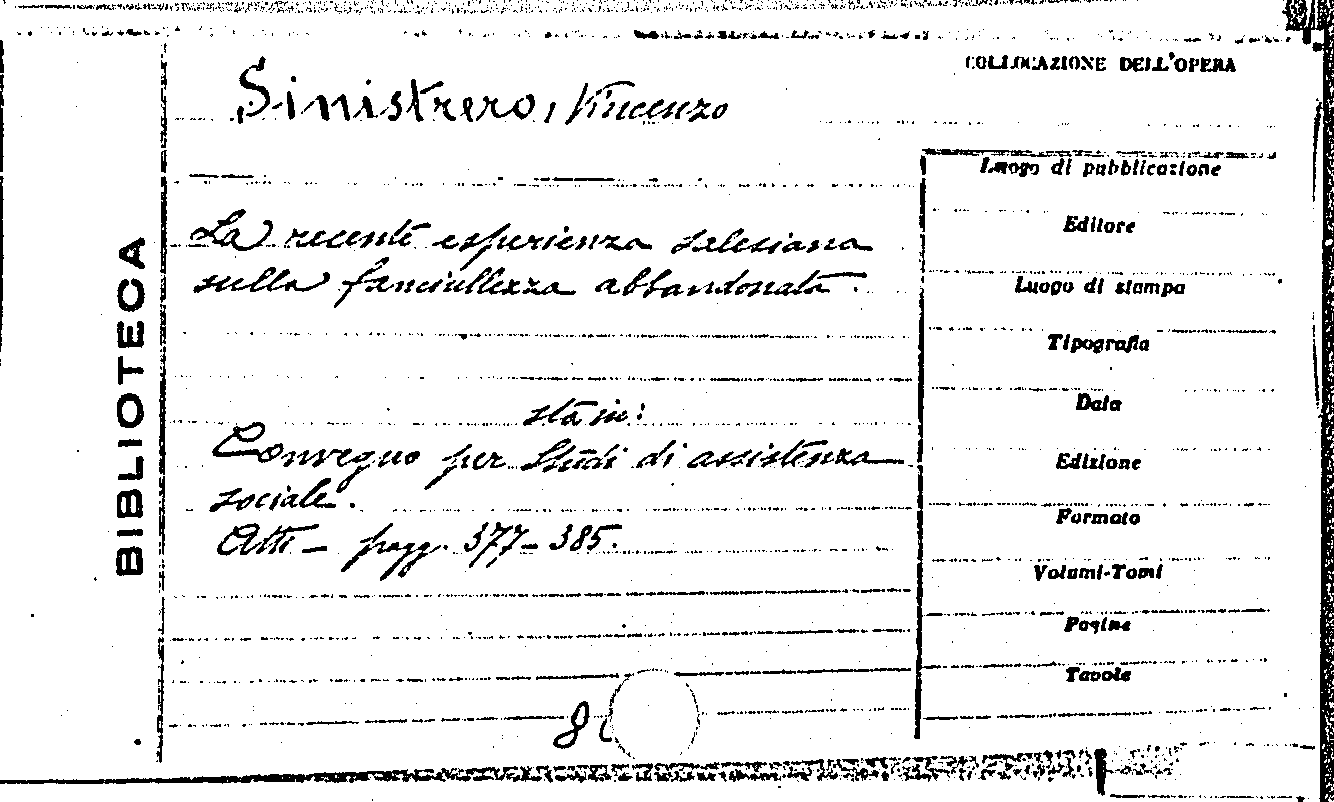 COLLOCAZIONE DELL'OPERA
Sinistrero, Vincenzo
La recente esperienza salesiana
sulla fanciullezza abbandonata.
sta in:
Convegno per Studi di assistenza
sociale.
Atti - pagg. 377-385.
8
BIBLIOTECA
Luogo di pubblicazione
Editore
Luogo di stampa
Tipografia
Data
Edizione
Formato
Volumi-Tomi
Pagine
Tavole